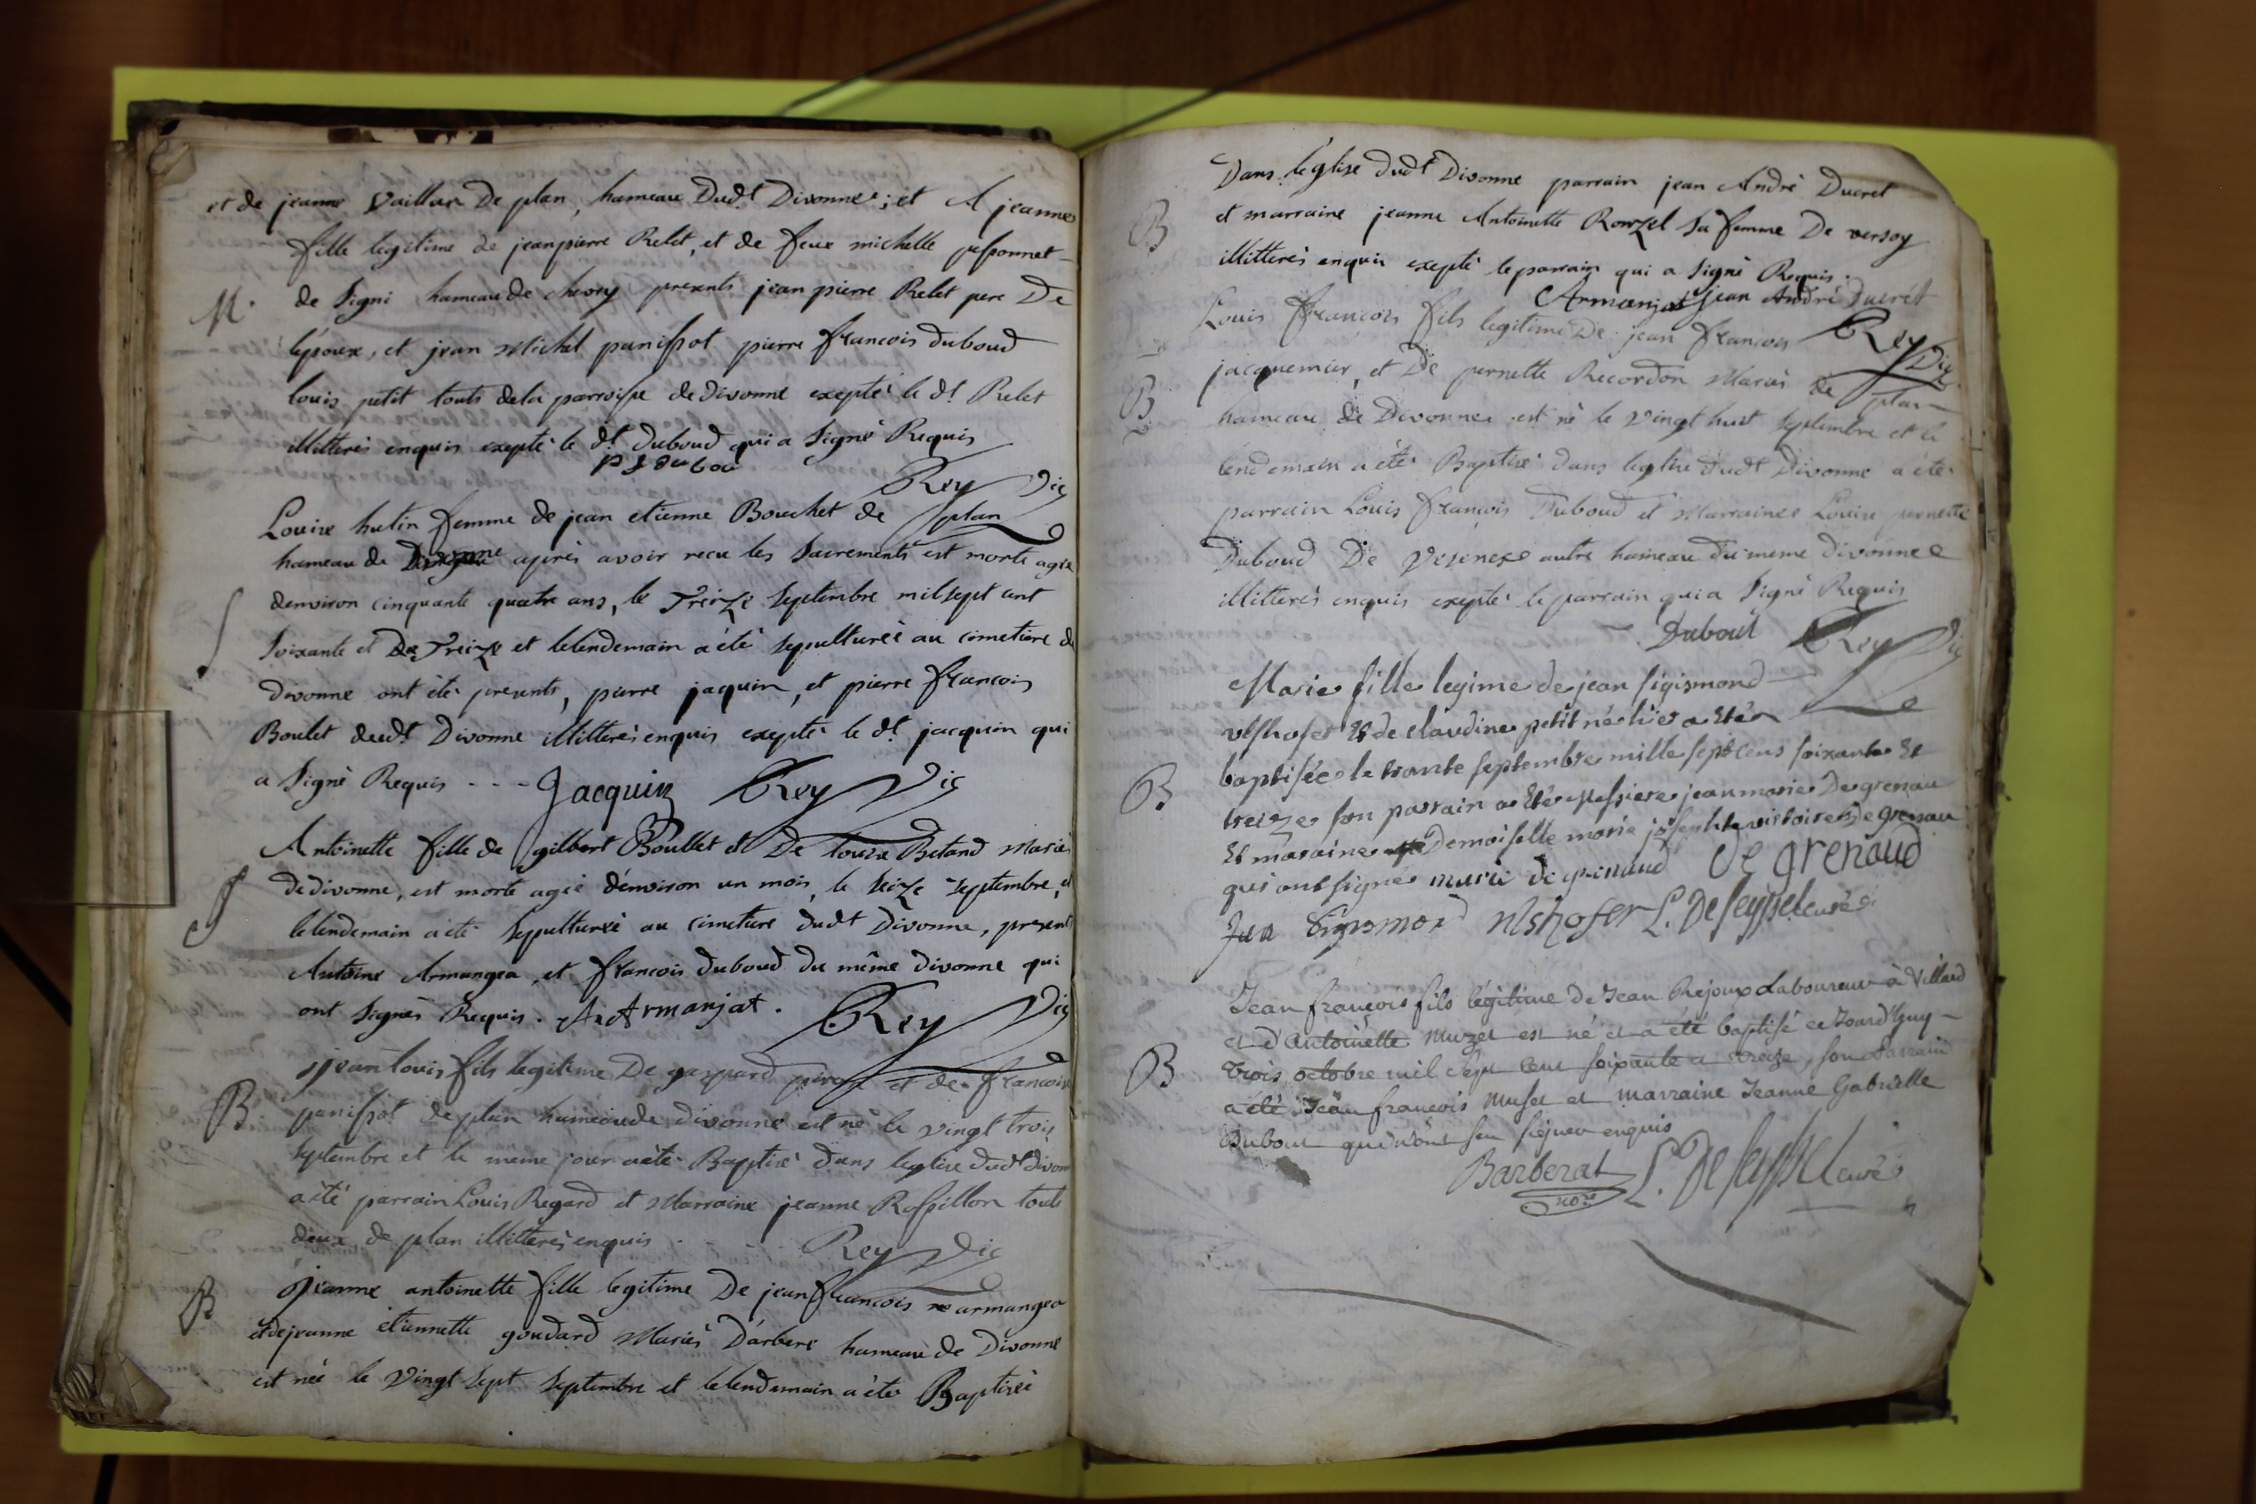 et de jeanne Vaillar De plan, hameau Dudt Divonne; et A jeanne
fille legitime de jean pierre Relet, et de feue michelle pessonnet
M. de Signi hameau de chevry presents jean pierre Relet pere De
lepoux, et jean Michel panissot pierre françois duboud
louis petit touts dela parroisse de divonne exepté le dt Relet
illitterés enquis exepté le dt duboud qui a Signé Requis
p f dubou
Rey Vic
Louise hutin femme de jean etienne Bouchet de plan
hameau de Divonne aprés avoir recu les Sacrements est morte agée
denviron cinquante quatre ans, le Treize Septembre mil sept cent
S Soixante et Treize et lelendemain a été sepulturée au cimetiere de
divonne ont été presents, pierre jaquin, et pierre françois
Boulet dudt Divonne illitterés enquis exepté le dt jacquin qui
a Signé Requis - - - Jacquin Rey Vic
Antoinette fille de gilbert Boullet et De louise Betand Mariés
S de divonne, est morte agée d'environ un mois, le Seize Septembre, et
lelendemain a été Sepulturée au cimetiere dudt Divonne, present
Antoine Armangea, et françois duboud du même divonne qui
ont Signés Requis. A Armanjat. Rey Vic
jean louis fils legitime De gaspard et de francoise
B panissot de plan hameau de divonne est né le vingt trois
Septembre et le meme jour a été Baptisé dans leglise dudt divonne
a été parrain Louis Regard et Marraine jeanne Rossillon touts
deux de plan illitterés enquis - - Rey Vic
B jeanne antoinette fille legitime De jean françois armangea
et de jeanne etiennette goudard Mariés D'arbere hameau de Divonne
est née le Vingt Sept Septembre et lelendemain a été Baptisée
Dans l'eglise dudt Divonne parrain jean André Ducret
B et marraine jeanne Antoinette Ronzel Sa femme De versoy
illitterés enquis exepté le parrain qui a Signé Requis.
Armanjat jean André Ducrét
Louis françois fils legitime De jean françois Rey Vic
jacquemier, et De pernette Recordon Mariés de plan
B hameau de Divonne est né le Vingt huit Septembre et le
lendemain a été Baptisé dans leglise dudt Divonne a été
parrain Louis françois Duboud et Marraine Louise pernette
Duboud De Vesenex autre hameau du meme divonne
illitterés enquis exepté le parrain qui a Signé Requis
Duboul Rey Vic
Marie fille legime de jean sigismond
et de claudine petit née hier a été
B baptisée le trante septembre mille sept cens soixante et
treize son parrain a été Messiere jean marie De grenau
et maraine Demoiselle marie josephte victoire De grenau
qui ont signés marie de grenaud de grenaud
L. De Seyssel curé
Jean françois fils légitime de Jean Rejoux Laboureur à Villard
et d'Antoinette Muzet est né et a été baptisé ce Jourd'huy
B trois octobre mil Sept cent soixante et treize, son parrain
a été Jean françois Muset et marraine Jeanne Gabrielle
Dubout qui n'ont seu signer enquis
Barberat L. De Seyssel curé
nore